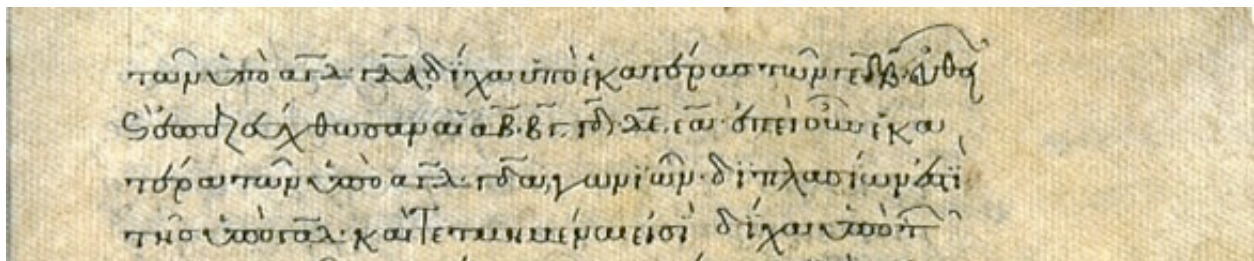 τῶν ὑπὸ αγδ· γδα, δίχα ὑπὸ ἑκατέρας τῶν γε δβ εὐθει
καὶ ἐπεζεύχθωσαν αἱ αβ· βγ· γδ· δε, εα· ἐπεὶ οὖν ἑκα
τέρα τῶν ὑπὸ αγδ· γδα, γωνιῶν διπλασίων ἐστὶ
τῆς ὑπὸ γαδ· καὶ τετμημέναι εἰσὶ δίχα ὑπὸ τ